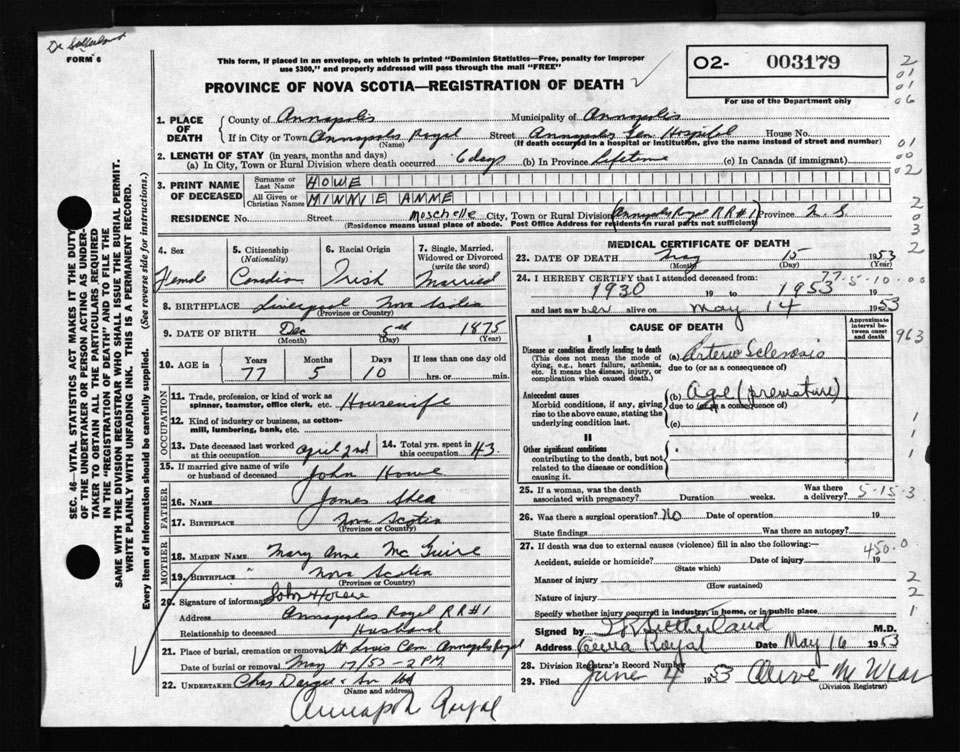 Dr Sutherland
FORM 6
This form, if placed in an envelope, on which is printed "Dominion Statistics—Free, penalty for improper
use $300," and properly addressed will pass through the mail "FREE"
PROVINCE OF NOVA SCOTIA—REGISTRATION OF DEATH
O2- 003179
For use of the Department only
2
01
01
06
01
00
02
2
0
3
2
SEC. 46—VITAL STATISTICS ACT MAKES IT THE DUTY
OF THE UNDERTAKER OR PERSON ACTING AS UNDER-
TAKER TO OBTAIN ALL THE PARTICULARS REQUIRED
IN THE "REGISTRATION OF DEATH" AND TO FILE THE
SAME WITH THE DIVISION REGISTRAR WHO SHALL ISSUE THE BURIAL PERMIT.
WRITE PLAINLY WITH UNFADING INK. THIS IS A PERMANENT RECORD.
Every item of information should be carefully supplied. (See reverse side for instructions.)
1. PLACE OF DEATH
County of Annapolis Municipality of Annapolis
If in City or Town Annapolis Royal Street Annapolis Gen Hospital House No.
(Name) (If death occurred in a hospital or institution, give the name instead of street and number)
2. LENGTH OF STAY (in years, months and days)
(a) In City, Town or Rural Division where death occurred 6 days (b) In Province Lifetime (c) In Canada (if immigrant)
3. PRINT NAME OF DECEASED
Surname or Last Name HOWE
All Given or Christian Names MINNIE ANNE
RESIDENCE No. Street Moschelle City, Town or Rural Division (Annapolis Royal RR#1) Province N.S.
(Residence means usual place of abode. Post Office Address for residents in rural parts not sufficient)
4. Sex
Female
5. Citizenship
(Nationality)
Canadian
6. Racial Origin
Irish
7. Single, Married, Widowed or Divorced
(write the word)
Married
8. BIRTHPLACE Liverpool Nova Scotia
(Province or Country)
9. DATE OF BIRTH Dec 5th 1875
(Month) (Day) (Year)
10. AGE in Years Months Days If less than one day old
77 5 10 hrs. or min.
OCCUPATION
11. Trade, profession, or kind of work as
spinner, teamster, office clerk, etc. Housewife
12. Kind of industry or business, as cotton-
mill, lumbering, bank, etc.
13. Date deceased last worked
at this occupation April 2nd
14. Total yrs. spent in
this occupation 43
15. If married give name of wife
or husband of deceased John Howe
FATHER
16. NAME James Shea
17. BIRTHPLACE Nova Scotia
(Province or Country)
MOTHER
18. MAIDEN NAME Mary Anne McGuire
19. BIRTHPLACE " Nova Scotia
(Province or Country)
20. Signature of informant John Howe
Address Annapolis Royal RR#1
Relationship to deceased Husband
21. Place of burial, cremation or removal St Louis Cem Annapolis Royal
Date of burial or removal May 17/53 - 2 PM
22. UNDERTAKER Chas Dargie & Son Ltd
(Name and address)
Annapolis Royal
MEDICAL CERTIFICATE OF DEATH
23. DATE OF DEATH May 15 1953
(Month) (Day) (Year)
77-5-10-00
24. I HEREBY CERTIFY that I attended deceased from:
1930 19 to 1953 19
and last saw her alive on May 14 1953
CAUSE OF DEATH
Approximate interval between onset and death
963
I
Disease or condition directly leading to death
(This does not mean the mode of
dying, e.g., heart failure, asthenia,
etc. It means the disease, injury, or
complication which caused death.)
(a) Arterio Sclerosis
due to (or as a consequence of)
Antecedent causes
Morbid conditions, if any, giving
rise to the above cause, stating the
underlying condition last.
(b) Age (premature)
due to (or as a consequence of)
(c)
II
Other significant conditions
contributing to the death, but not
related to the disease or condition
causing it.
1
1
1
25. If a woman, was the death
associated with pregnancy? Duration weeks. Was there
a delivery?
5-15-3
26. Was there a surgical operation? No Date of operation 19
State findings Was there an autopsy?
27. If death was due to external causes (violence) fill in also the following:
450.0
Accident, suicide or homicide? Date of injury 19
(State which)
Manner of injury
(How sustained)
2
Nature of injury
2
Specify whether injury occurred in industry, in home, or in public place
1
Signed by Sutherland M.D.
Address Anna Royal Date May 16 1953
28. Division Registrar's Record Number
29. Filed June 4 1953
(Division Registrar)